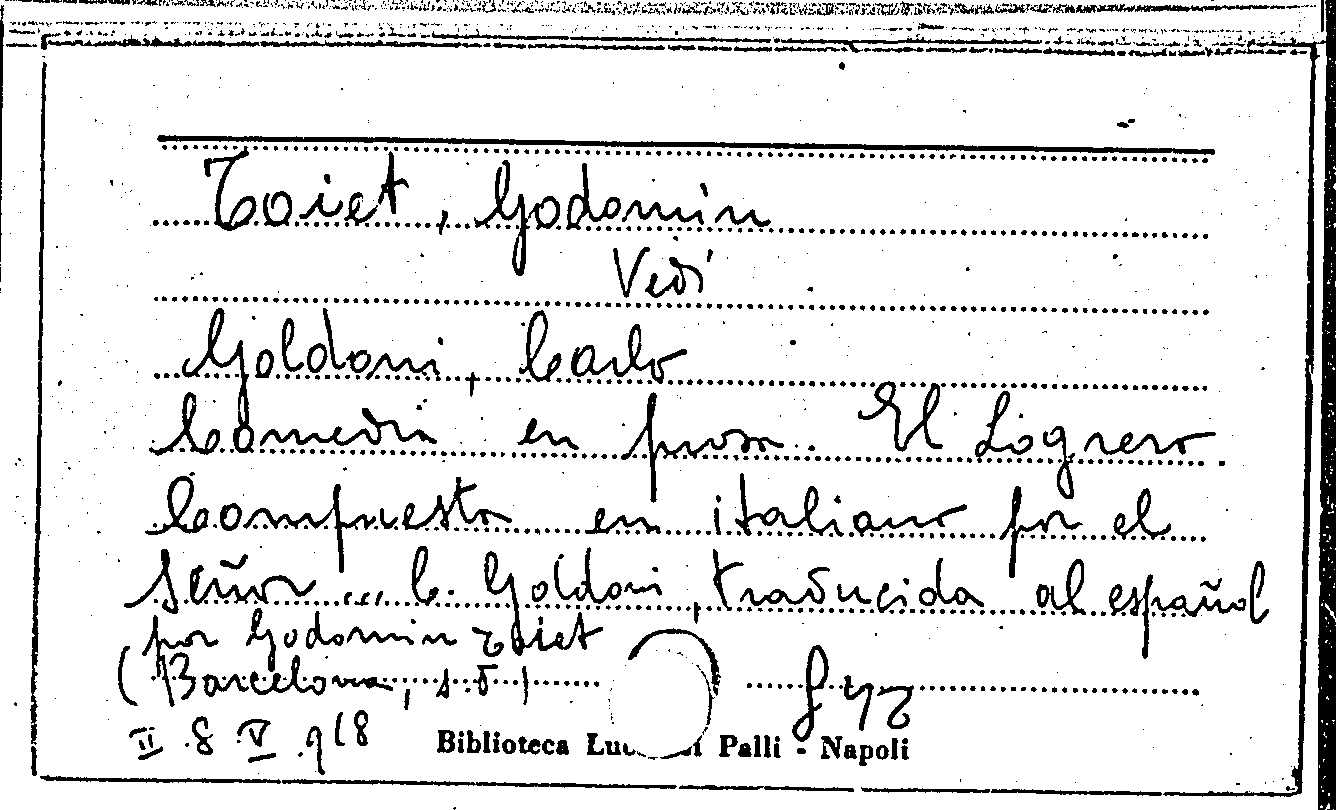 Toiet, Godomin
Vedi
Goldoni, Carlo
Comedia en prosa. El Logrero
Compuesta en italiano por el
señor ... C. Goldoni, traducida al español
por Godomin Toiet
(Barcelona, s.d)
II .8 .V .9(8
Biblioteca Luc Palli - Napoli